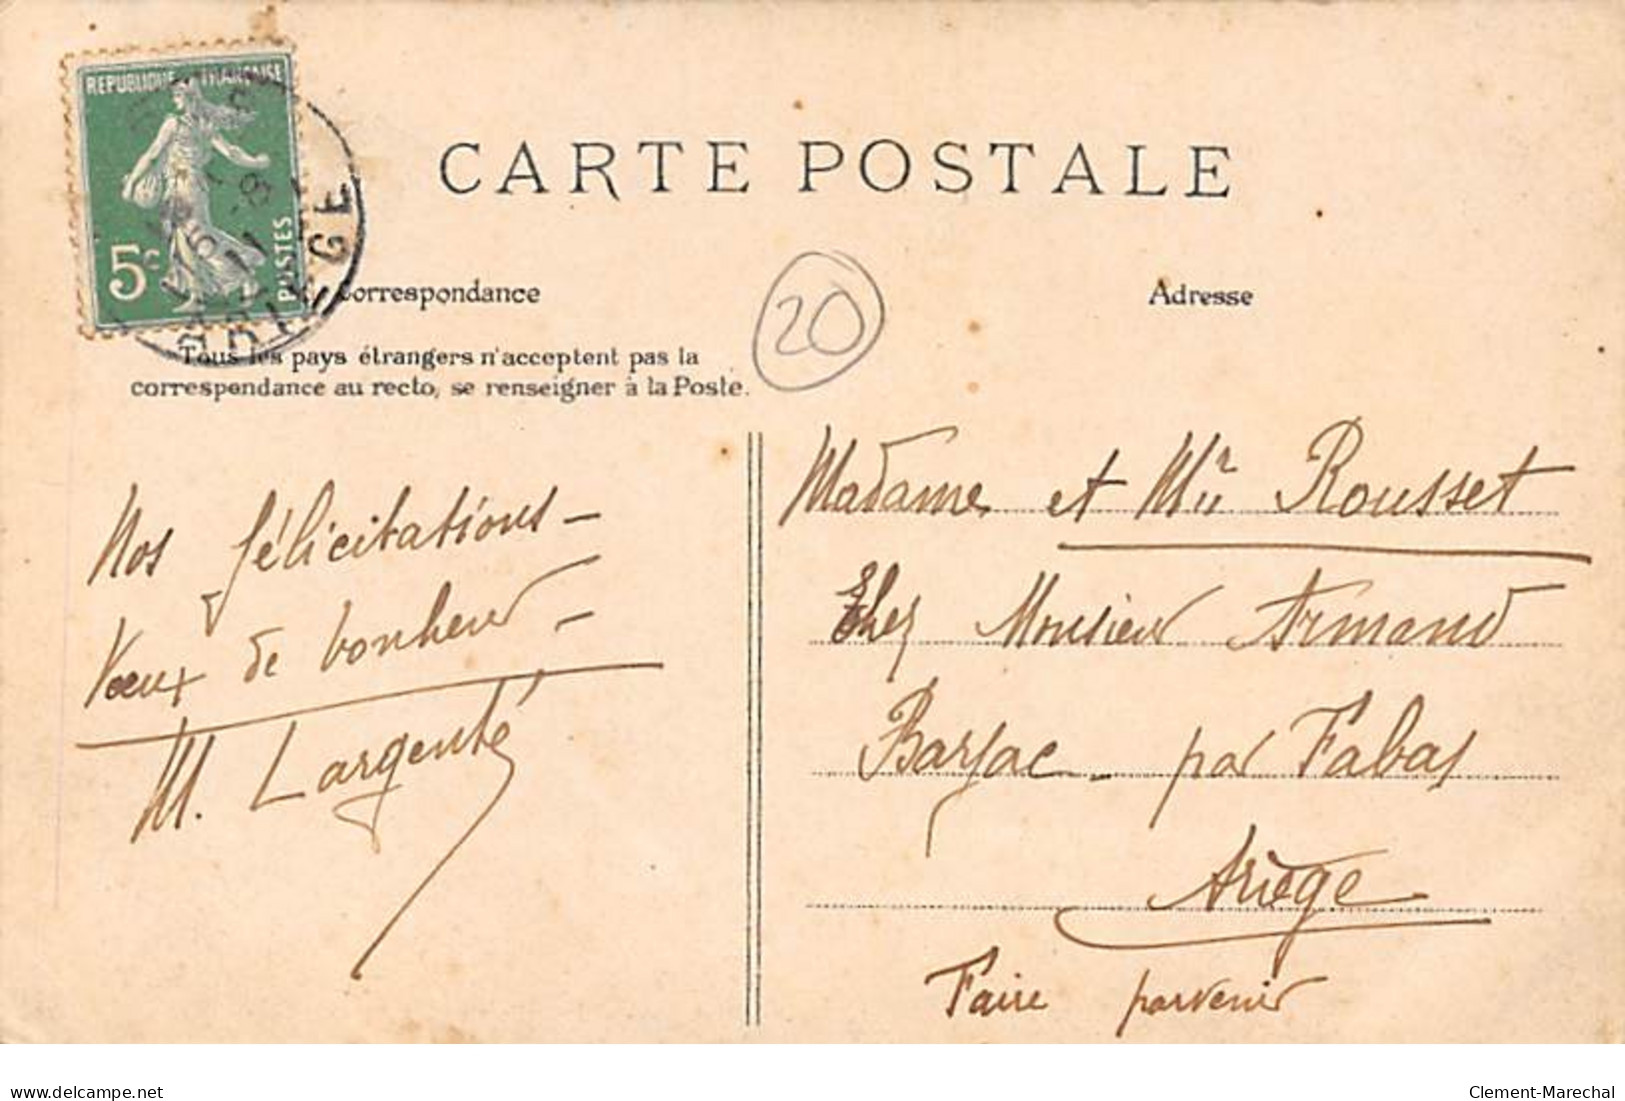 REPUBLIQUE FRANÇAISE
5c
POSTES
ARIEGE
CARTE POSTALE
Correspondance
Adresse
20
Tous les pays étrangers n'acceptent pas la
correspondance au recto, se renseigner à la Poste.
Nos félicitations -
Vœux de bonheur -
M. Largenté
Madame et Mr Rousset
Chez Monsieur Armand
Barjac - par Fabas
Ariège
Faire parvenir
delcampe.net
Clement-Marechal